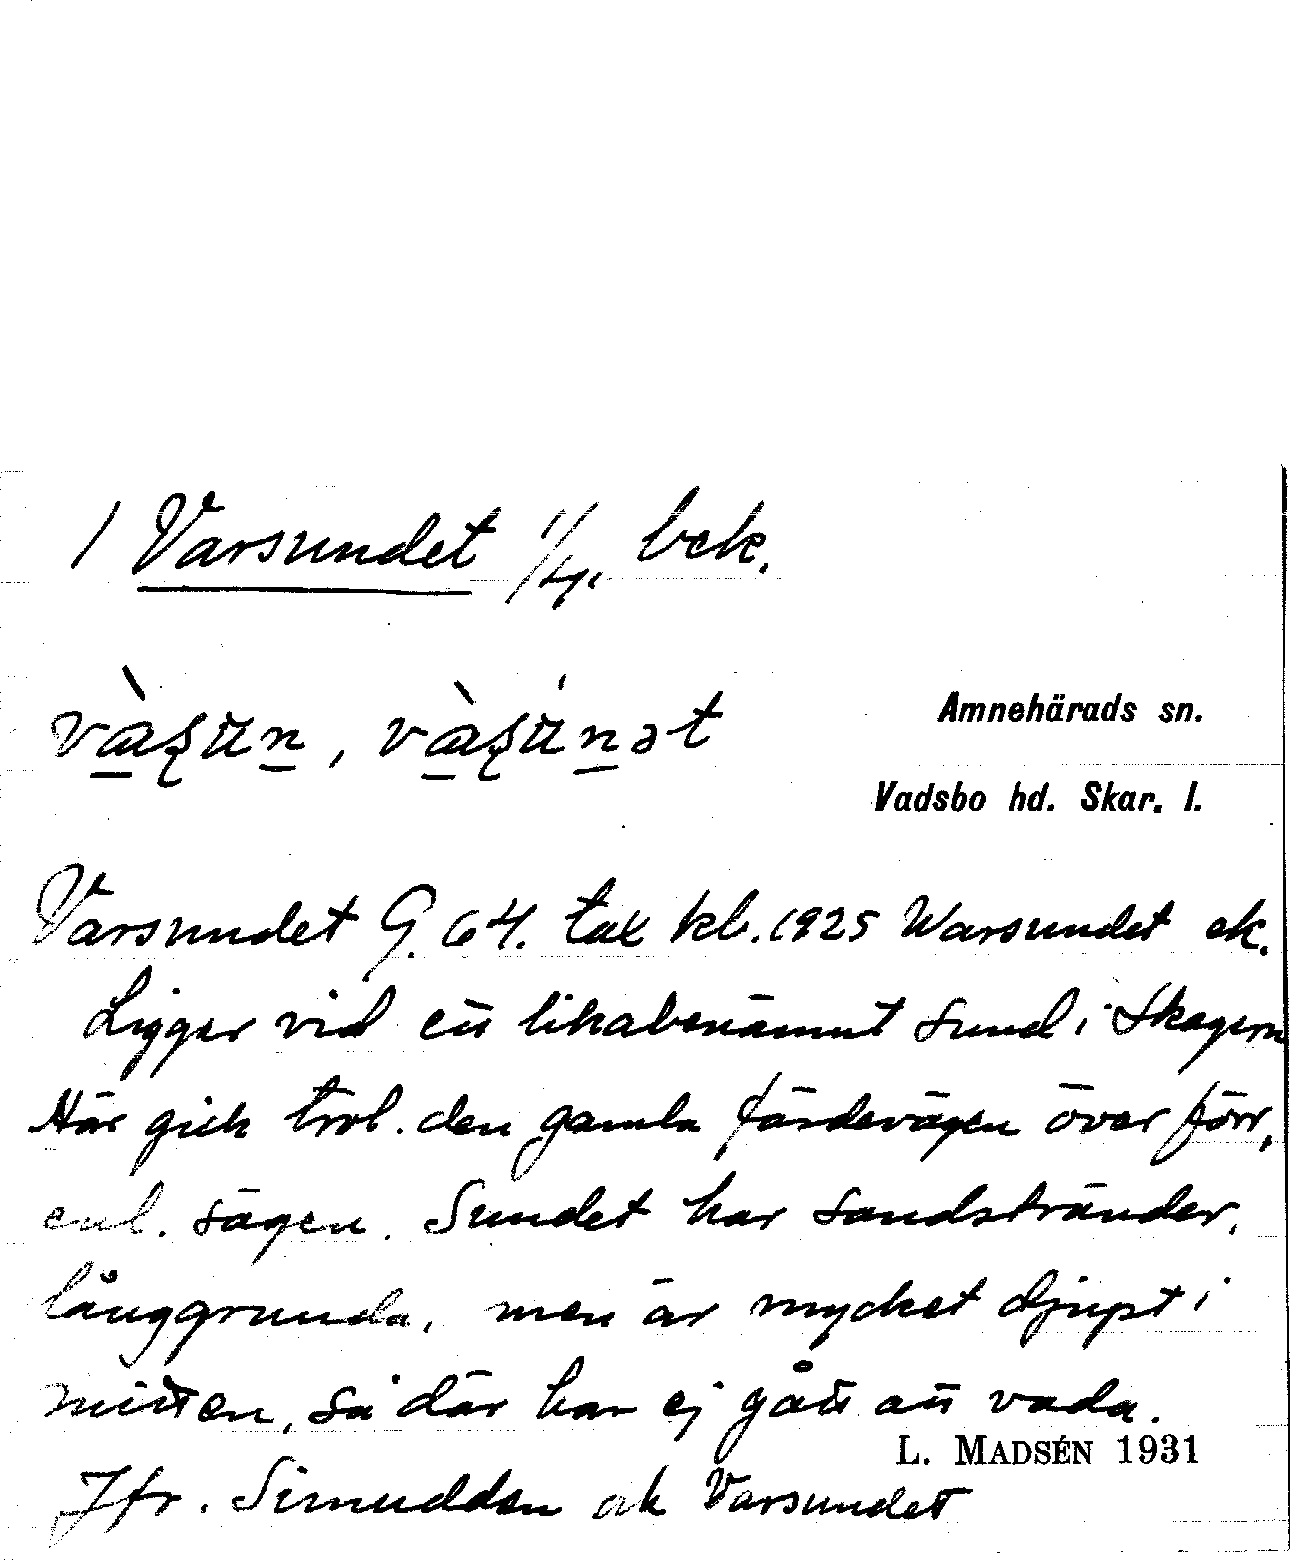 1 Varsundet 1/4 bek.
Amnehärads sn.
Vadsbo hd. Skar. l.
Varsundet G. 64. tax kb. 1925 Warsundet ek.
Ligger vid ett likabenämnt sund i Skagern
Här gick trol. den gamla färdevägen över förr,
enl. sägen. Sundet har sandstränder,
långgrunda, men är mycket djupt i
mitten, så där har ej gått att vada.
L. MADSÉN 1931
Jfr. Simudden ak Varsundet